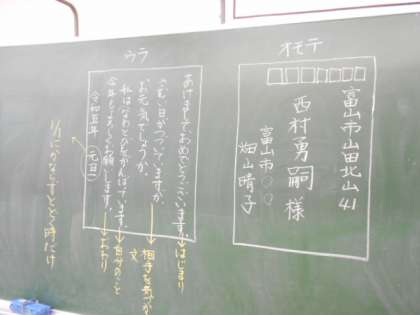 オモテ
富山市山田北山41
西村勇嗣様
富山市〇〇
畑山晴子
ウラ
あけましておめでとうございます。
さむい日がつづいていますが、
お元気でしょうか。
私はなわとびをがんばっています。
今年もよろしくお願いします。
令和五年 元日
はじまり
相手を気づかう
文
自分のこと
おわり
1/1にかならずとどく時だけ